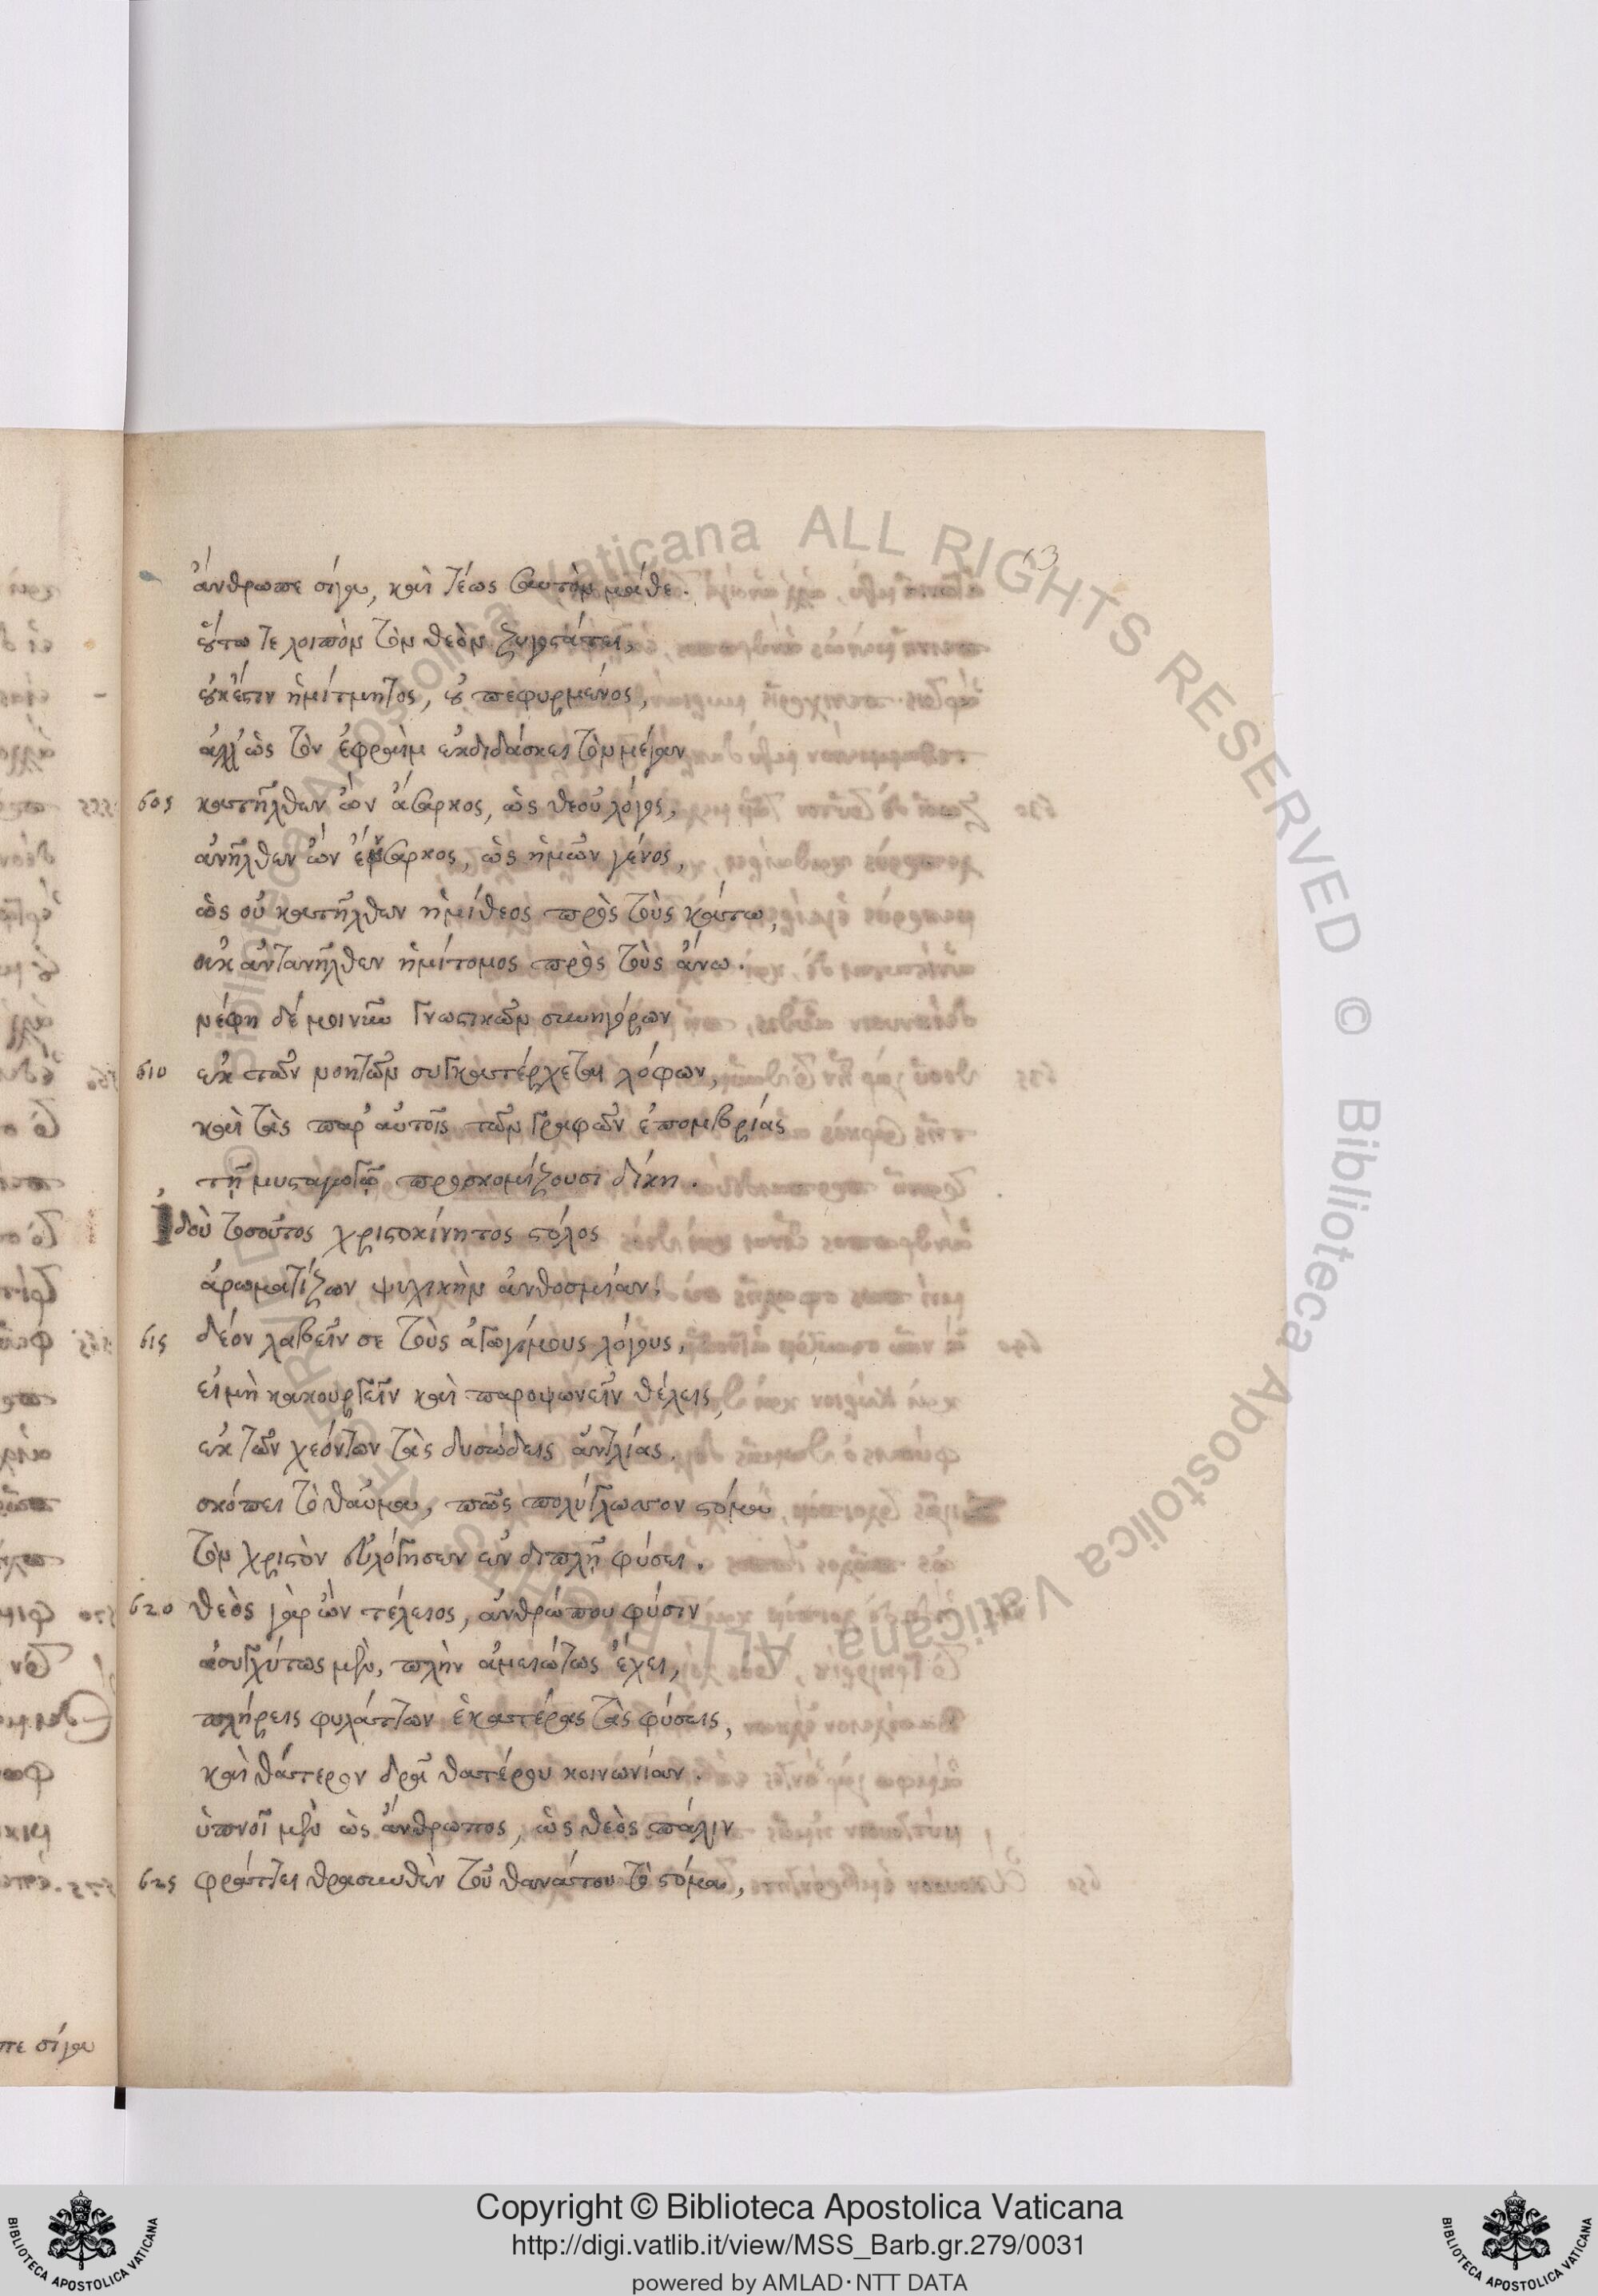 13
ἄνθρωπε σίγα, καὶ τέως σαυτὸν μάθε.
οὕτω τε λοιπὸν τὸν θεὸν ζυγοστάτει,
οὐκ ἔστιν ἡμίτμητος, οὐ πεφυρμένος,
ἀλλ' ὡς τὸν ἐφραὶμ ἐκδιδάσκει τὸν μέγαν
605 κατῆλθεν ὢν ἄσαρκος, ὡς θεοῦ λόγος,
ἀνῆλθεν ὢν ἔνσαρκος, ὡς ἡμῶν γένος,
ὡς οὐ κατῆλθεν ἡμίθεος πρὸς τοὺς κάτω,
οὐκ ἀντανῆλθεν ἡμίτομος πρὸς τοὺς ἄνω.
νέφη δέ μοι νῦν γνωστικῶν συνηγόρων
610 ἐκ τῶν νοητῶν συγκατέρχεται λόφων,
καὶ τὰς παρ' αὐτοῖς τῶν γραφῶν ἐπομβρίας
τῇ μυσταγωγῷ προσκομίζουσι δίκῃ.
Ἰδοὺ τοσοῦτος χριστοκίνητος στόλος
ἀρωματίζων ψυχικὴν ἀνθοσμίαν,
615 δέον λαβεῖν σε τοὺς ἀγωγίμους λόγους,
εἰ μὴ κακουργεῖν καὶ παροψωνεῖν θέλεις,
ἐκ τῶν χεόντων τὰς δυσώδεις ἀντλίας.
σκόπει τὸ θαῦμα, πῶς πολύγλωττον στόμα
τὸν χριστὸν εὐλόγησεν ἐν διπλῇ φύσει.
620 θεὸς γὰρ ὢν τέλειος, ἀνθρώπου φύσιν
ἀσυγχύτως μὲν, πλὴν ἀμειώτως ἔχει,
πλήρεις φυλάττων ἑκατέρας τὰς φύσεις,
καὶ θάτερον δρᾷ θατέρου κοινωνίαν.
ὑπνοῖ μὲν ὡς ἄνθρωπος, ὡς θεὸς πάλιν
625 φράττει θρασυνθὲν τοῦ θανάτου τὸ στόμα,
555
560
565
570
575
πε σίγα
Copyright © Biblioteca Apostolica Vaticana
http://digi.vatlib.it/view/MSS_Barb.gr.279/0031
powered by AMLAD·NTT DATA
BIBLIOTECA APOSTOLICA VATICANA
BIBLIOTECA APOSTOLICA VATICANA
© Biblioteca Apostolica Vaticana ALL RIGHTS RESERVED © Biblioteca Apostolica Vaticana ALL RIGHTS RESERVED